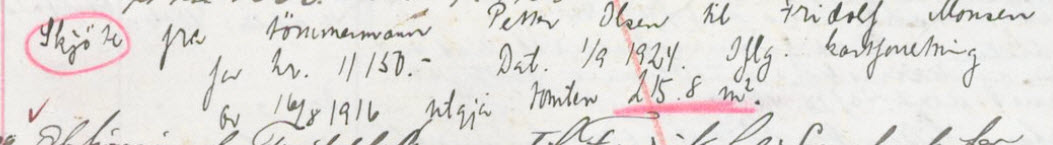 Skjöte fra tömmermann Petter Olsen til Fridolf Monsen
for kr. 11150.- Dat. 1/9 1924. Iflg. kartforretning
av 16/8 1916 utgjør tomten 215.8 m².